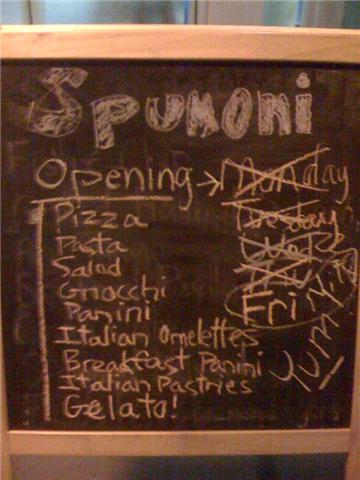 Spumoni
Opening → Monday
Pizza Tuesday
Pasta
Salad
Gnocchi Fri
Panini
Italian Omelettes
Breakfast Panini
Italian Pastries
Gelato!
Yum